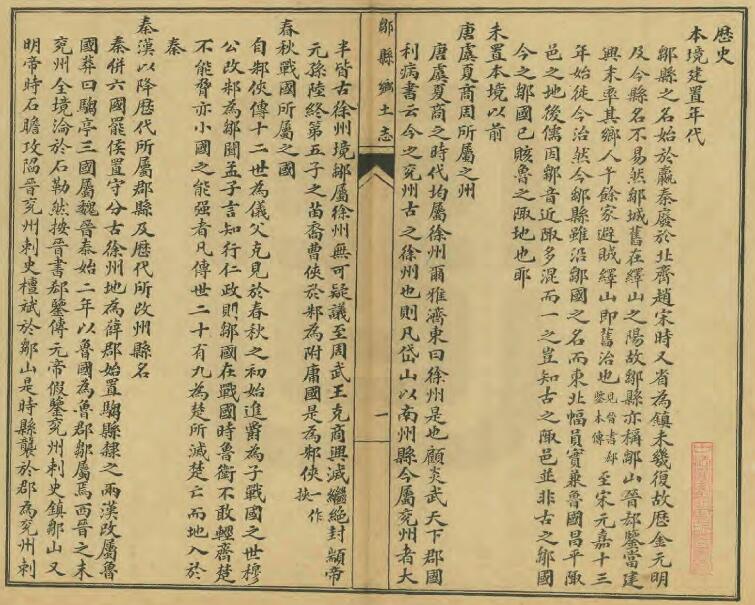 歷史
本境建置年代
鄒縣之名始於嬴秦廢於北齊趙宋時又省為鎮未幾復故歷金元明
及今縣名不易然鄒城舊在繹山之陽故鄒縣亦稱鄒山晉郗鑒當建
興末率其鄉人千餘家避賊繹山即舊治也見晉書郗鑒本傳至宋元嘉十三
年始徙今治然今鄒縣雖沿鄒國之名而東北幅員實兼魯國昌平陬
邑之地後儒因鄒音近陬多混而一之豈知古之陬邑並非古之鄒國
今之鄒國已賅魯之陬地也耶
未置本境以前
唐虞夏商周所屬之州
唐虞夏商之時代均屬徐州爾雅濟東曰徐州是也顧炎武天下郡國
利病書云今之兗州古之徐州也則凡岱山以南州縣今屬兗州者大
鄒縣鄉土志
一
半皆古徐州境鄒屬徐州無可疑議至周武王克商興滅繼絕封顓帝
元孫陸終第五子之苗裔曹俠於邾為附庸國是為邾俠一作挾
春秋戰國所屬之國
自邾俠傳十二世為儀父克見於春秋之初始進爵為子戰國之世穆
公改邾為鄒聞孟子言知行仁政則鄒國在戰國時魯衛不敢輕齊楚
不能脅亦小國之能强者凡傳世二十有九為楚所滅楚亡而地入於
秦
秦漢以降歷代所屬郡縣及歷代所改州縣名
秦併六國罷侯置守分古徐州地為薛郡始置騶縣隸之兩漢改屬魯
國莽曰騶亭三國屬魏晉泰始二年以魯國為魯郡鄒屬焉西晉之末
兗州全境淪於石勒然按晉書郗鑒傳元帝假鑒兗州刺史鎮鄒山又
明帝時石瞻攻陷晉兗州刺史檀斌於鄒山是時縣襲於郡為兗州刺